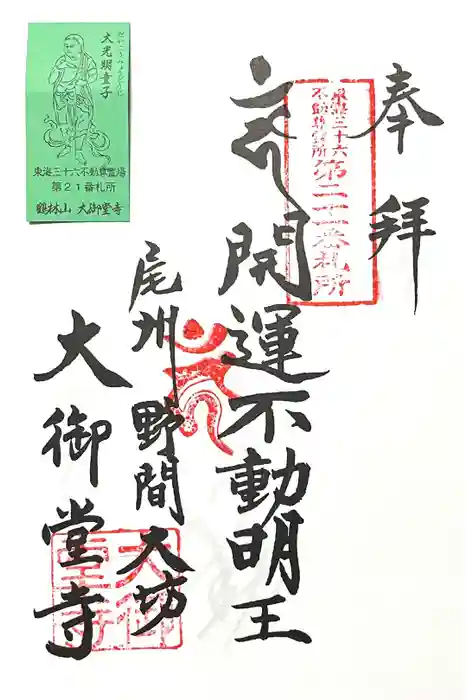 奉拝
東海三十六
不動尊霊場
第二十一番札所
開運不動明王
尾州野間大坊
大御堂寺
大光明童子
東海三十六不動尊霊場
第21番札所
鶴林山 大御堂寺